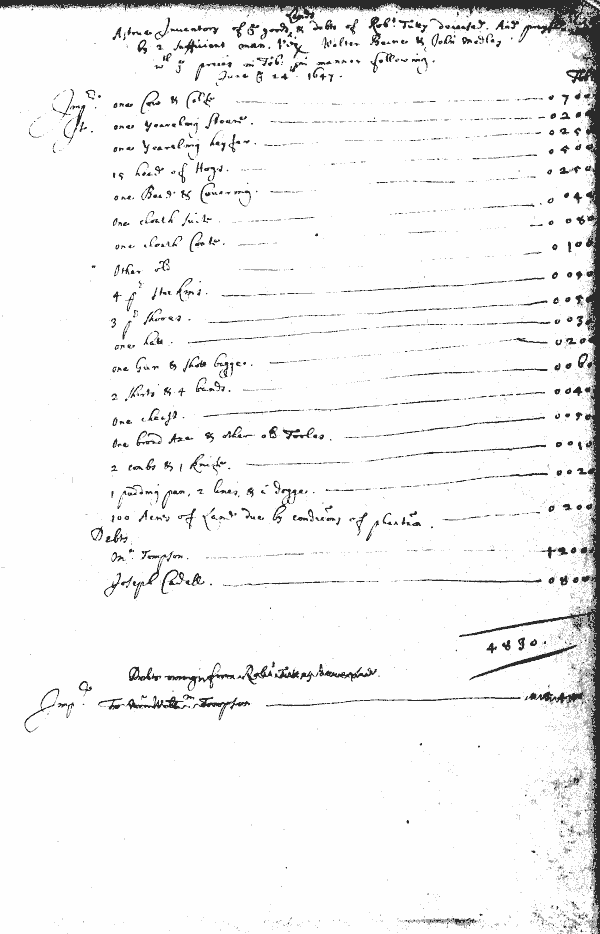 Lands
A true Inventory of ye goods & debts of Robt. Tuttey deceased. And
by 2 sufficient men. viz Walter Beane & John Medley
wth ye prices in Tob: in manner following.
June ye 24th 1647.
Impr. one Cow & Calfe 0700
It. one Yeareling Steare. 0200
one Yeareling heyfer. 0250
15 head of Hogs. 0400
one Bead & Covering. 0250
one cloath suite 004
one cloath Coate. 0080
Other old 0100
4 pr stockins. 0090
3 pr shooes. 0050
one hatt. 0030
one Gun & shott bagge. 0200
2 shirts & 4 bands. 0080
One chest. 0040
One broad Axe & other old Tooles. 0050
2 combs & 1 knife. 0010
1 pudding pan, 2 lines, & a dogge. 0020
100 Acres of Land due by conditions of plantacon. 0200
Debts
Mr. Tompson. 1200
Joseph Cadell. 0800
4830.
Debts owing from Robt
Impr. To Mr Willm. Tompson